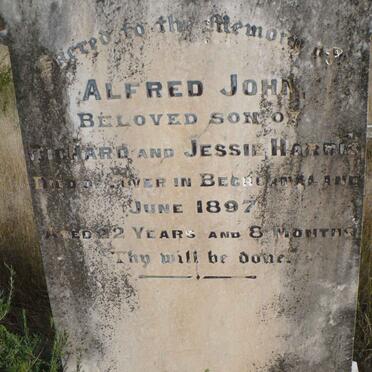 Sacred to the Memory of
ALFRED JOHN
BELOVED SON OF
RICHARD AND JESSIE HARRIS
DIED OF FEVER IN BECHUANALAND
JUNE 1897
AGED 22 YEARS AND 8 MONTHS
Thy will be done.